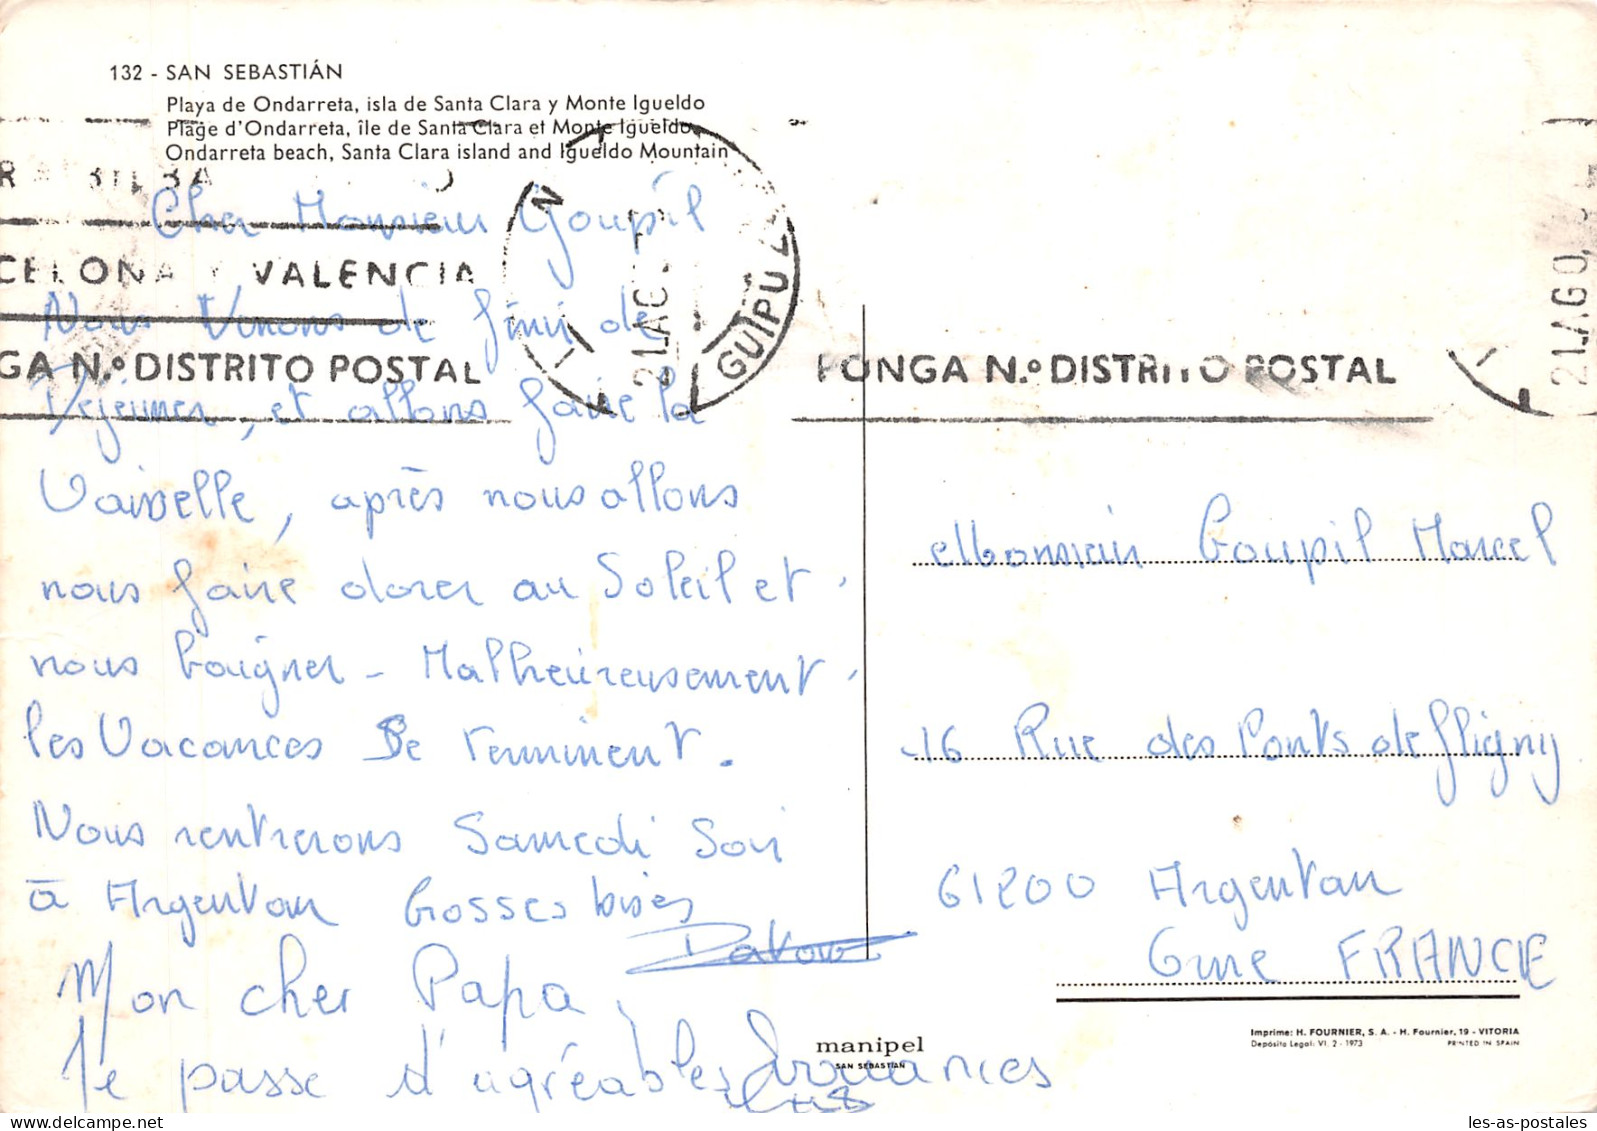 132 - SAN SEBASTIÁN
Playa de Ondarreta, isla de Santa Clara y Monte Igueldo
Plage d'Ondarreta, île de Santa Clara et Monte Igueldo
Ondarreta beach, Santa Clara island and Igueldo Mountain
CELONA Y VALENCIA
GA N.º DISTRITO POSTAL
21 AGO
GUIPUZ
PONGA N.º DISTRITO POSTAL
21 AGO
Cher Monsieur Goupil
Nous Venons de finir de
Dejeuner, et allons faire la
Vaisselle, après nous allons
nous faire dorer au Soleil et
nous baigner - Malheureusement
les Vacances Se terminent.
Nous rentrerons Samedi Soir
à Argentan Grosses bises
Mon cher Papa,
Je passe d'agréables vacances
Monsieur Goupil Marcel
16 Rue des Ponts de fligny
61200 Argentan
Orne FRANCE
manipel
SAN SEBASTIÁN
Imprime: H. FOURNIER, S. A. - H. Fournier, 19 - VITORIA
Depósito Legal: VI. 2 - 1973 PRINTED IN SPAIN
les-as-postales